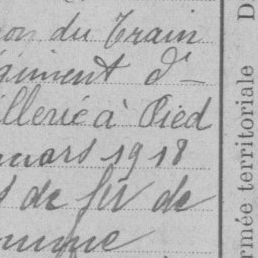 on du Train
giment d'
illerie à Pied
mars 1918
s de fer de
omme
rmée territoriale
D